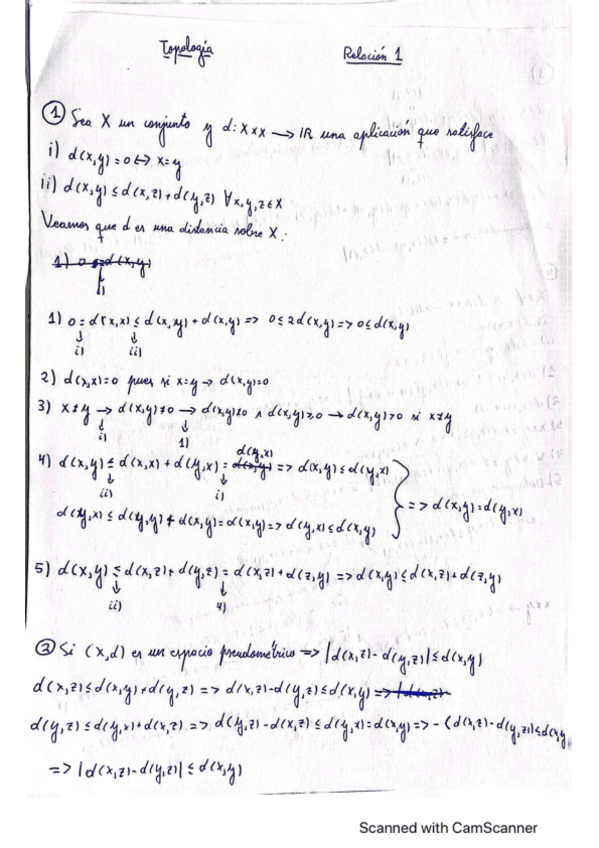 Topología Relación 1
① Sea X un conjunto y d: X×X → IR una aplicación que satisface
i) d(x,y)=0 ↔ x=y
ii) d(x,y) ≤ d(x,z)+d(y,z) ∀x,y,z∈X
Veamos que d es una distancia sobre X:
1) 0 = d(x,y)
i)
1) 0 = d(x,x) ≤ d(x,y) + d(x,y) => 0 ≤ 2d(x,y) => 0 ≤ d(x,y)
↓ ↓
i) ii)
2) d(x,x)=0 pues si x=y → d(x,y)=0
3) x≠y → d(x,y)≠0 → d(x,y)≠0 ∧ d(x,y)≥0 → d(x,y)>0 si x≠y
↓ ↓
i) 1)
d(y,x)
4) d(x,y) ≤ d(x,x) + d(y,x) = d(x,y) => d(x,y) ≤ d(y,x)
↓ ↓
ii) i)
=> d(x,y)=d(y,x)
d(y,x) ≤ d(y,y) + d(x,y) = d(x,y) => d(y,x) ≤ d(x,y)
5) d(x,y) ≤ d(x,z)+d(y,z) = d(x,z)+d(z,y) => d(x,y) ≤ d(x,z)+d(z,y)
↓ ↓
ii) 4)
② Si (X,d) es un espacio pseudométrico => |d(x,z)-d(y,z)| ≤ d(x,y)
d(x,z) ≤ d(x,y)+d(y,z) => d(x,z)-d(y,z) ≤ d(x,y) => |d(x,z)-
d(y,z) ≤ d(y,x)+d(x,z) => d(y,z)-d(x,z) ≤ d(y,x)=d(x,y) => -(d(x,z)-d(y,z)) ≤ d(x,y
=> |d(x,z)-d(y,z)| ≤ d(x,y)
Scanned with CamScanner